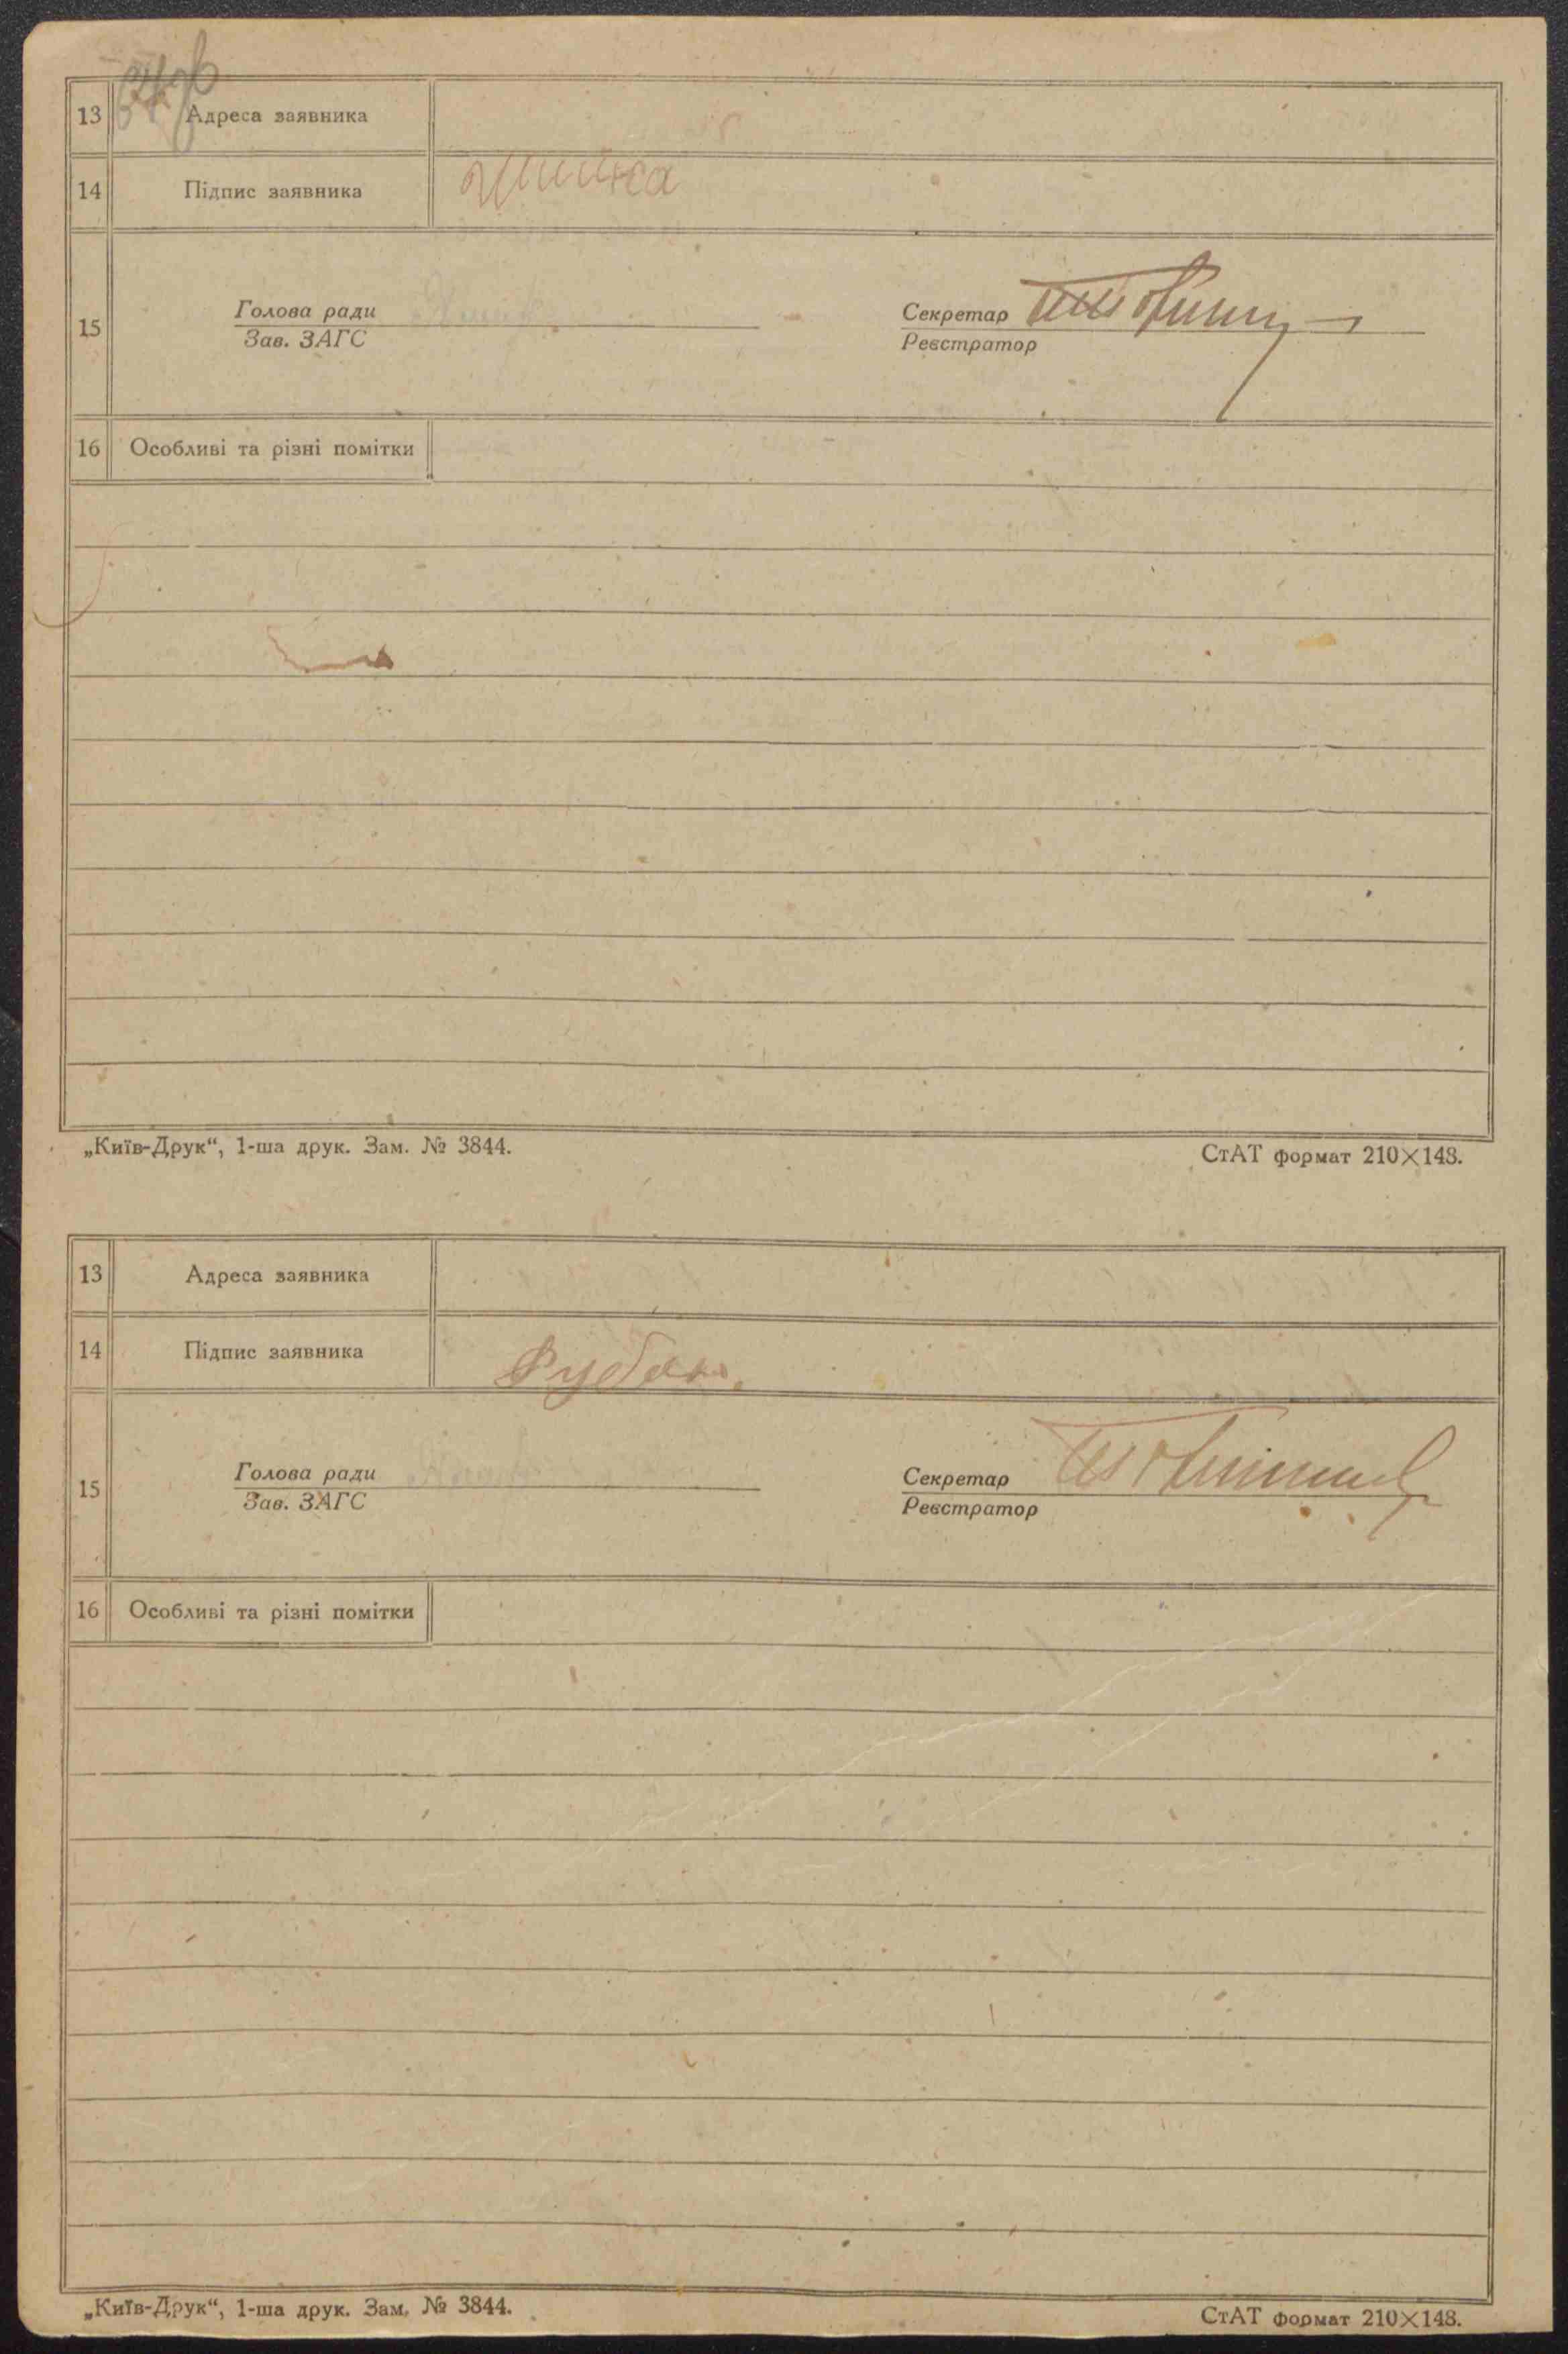 13 Адреса заявника
14 Підпис заявника
15 Голова ради Секретар
Зав. ЗАГС Реєстратор
16 Особливі та різні помітки
„Київ-Друк“, 1-ша друк. Зам. № 3844. СтАТ формат 210×148.
13 Адреса заявника
14 Підпис заявника Рубан.
15 Голова ради Секретар
Зав. ЗАГС Реєстратор
16 Особливі та різні помітки
„Київ-Друк“, 1-ша друк. Зам. № 3844. СтАТ формат 210×148.